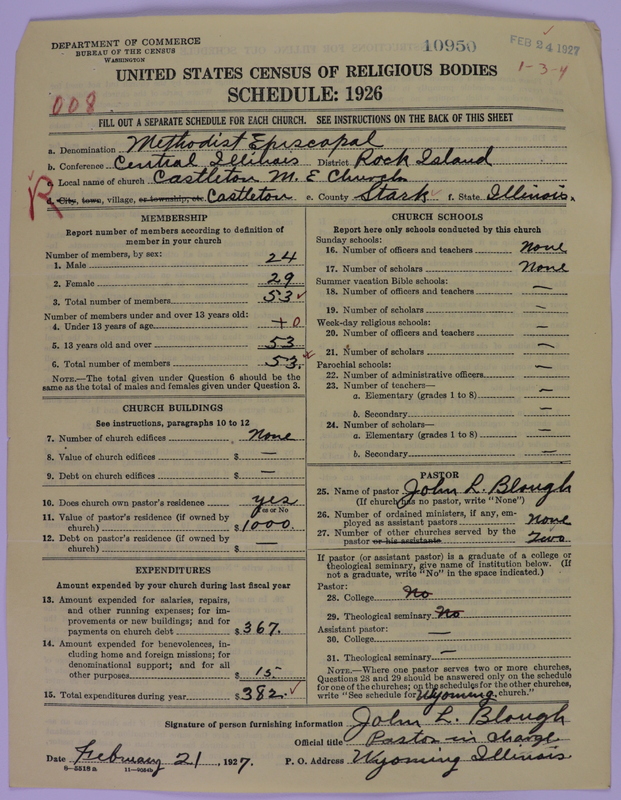 DEPARTMENT OF COMMERCE
BUREAU OF THE CENSUS
WASHINGTON
10950
FEB 24 1927
1-3-4
UNITED STATES CENSUS OF RELIGIOUS BODIES
SCHEDULE: 1926
008
FILL OUT A SEPARATE SCHEDULE FOR EACH CHURCH. SEE INSTRUCTIONS ON THE BACK OF THIS SHEET
a. Denomination Methodist Episcopal
b. Conference Central Illinois District Rock Island
c. Local name of church Castleton M. E Church
R
d. City, town, village, or township, etc. Castleton e. County Stark f. State Illinois
MEMBERSHIP
Report number of members according to definition of
member in your church
Number of members, by sex:
1. Male 24
2. Female 29
3. Total number of members 53
Number of members under and over 13 years old:
4. Under 13 years of age 0
5. 13 years old and over 53
6. Total number of members 53.
NOTE.—The total given under Question 6 should be the
same as the total of males and females given under Question 3.
CHURCH BUILDINGS
See instructions, paragraphs 10 to 12
7. Number of church edifices None
8. Value of church edifices $ —
9. Debt on church edifices $ —
10. Does church own pastor's residence yes
Yes or No
11. Value of pastor's residence (if owned by
church) $ 1000
12. Debt on pastor's residence (if owned by
church) $ —
EXPENDITURES
Amount expended by your church during last fiscal year
13. Amount expended for salaries, repairs,
and other running expenses; for im-
provements or new buildings; and for
payments on church debt $ 367.
14. Amount expended for benevolences, in-
cluding home and foreign missions; for
denominational support; and for all
other purposes $ 15
15. Total expenditures during year $ 382.
CHURCH SCHOOLS
Report here only schools conducted by this church
Sunday schools:
16. Number of officers and teachers None
17. Number of scholars None
Summer vacation Bible schools:
18. Number of officers and teachers —
19. Number of scholars —
Week-day religious schools:
20. Number of officers and teachers —
21. Number of scholars —
Parochial schools:
22. Number of administrative officers
23. Number of teachers—
a. Elementary (grades 1 to 8) —
b. Secondary —
24. Number of scholars—
a. Elementary (grades 1 to 8) —
b. Secondary —
PASTOR
25. Name of pastor John L. Blough
(If church has no pastor, write "None")
26. Number of ordained ministers, if any, em-
ployed as assistant pastors None
27. Number of other churches served by the
pastor or his assistants Two
If pastor (or assistant pastor) is a graduate of a college or
theological seminary, give name of institution below. (If
not a graduate, write "No" in the space indicated.)
Pastor:
28. College No
29. Theological seminary No
Assistant pastor:
30. College —
31. Theological seminary —
NOTE.—Where one pastor serves two or more churches,
Questions 28 and 29 should be answered only on the schedule
for one of the churches; on the schedules for the other churches,
write "See schedule for Wyoming church."
Signature of person furnishing information John L. Blough
Official title Pastor in charge
Date February 21, 1927. P. O. Address Wyoming Illinois